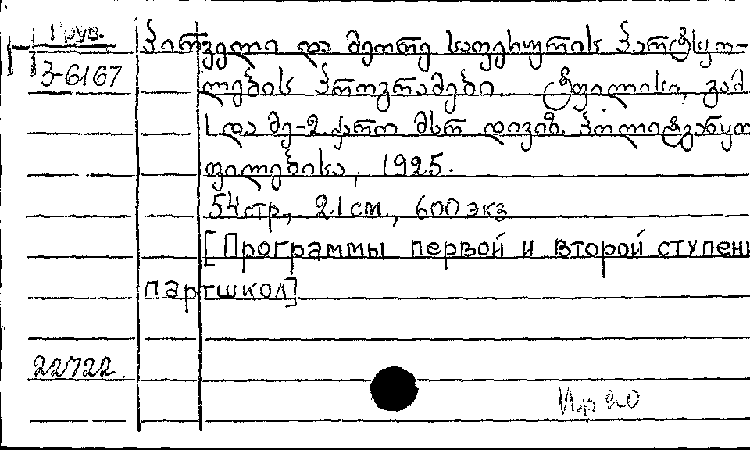 Груз.
3-6167
პირველი და მეორე საფეხურის პარტსკო-
ლების პროგრამები. ტფილისი, გამ.
1 და მე-2 ქართ. მსრ. დივიზ. პოლიტგანყო-
ფილებისა, 1925.
54 стр., 21 см., 600 экз
[Программы первой и второй ступени
партшкол]
22722